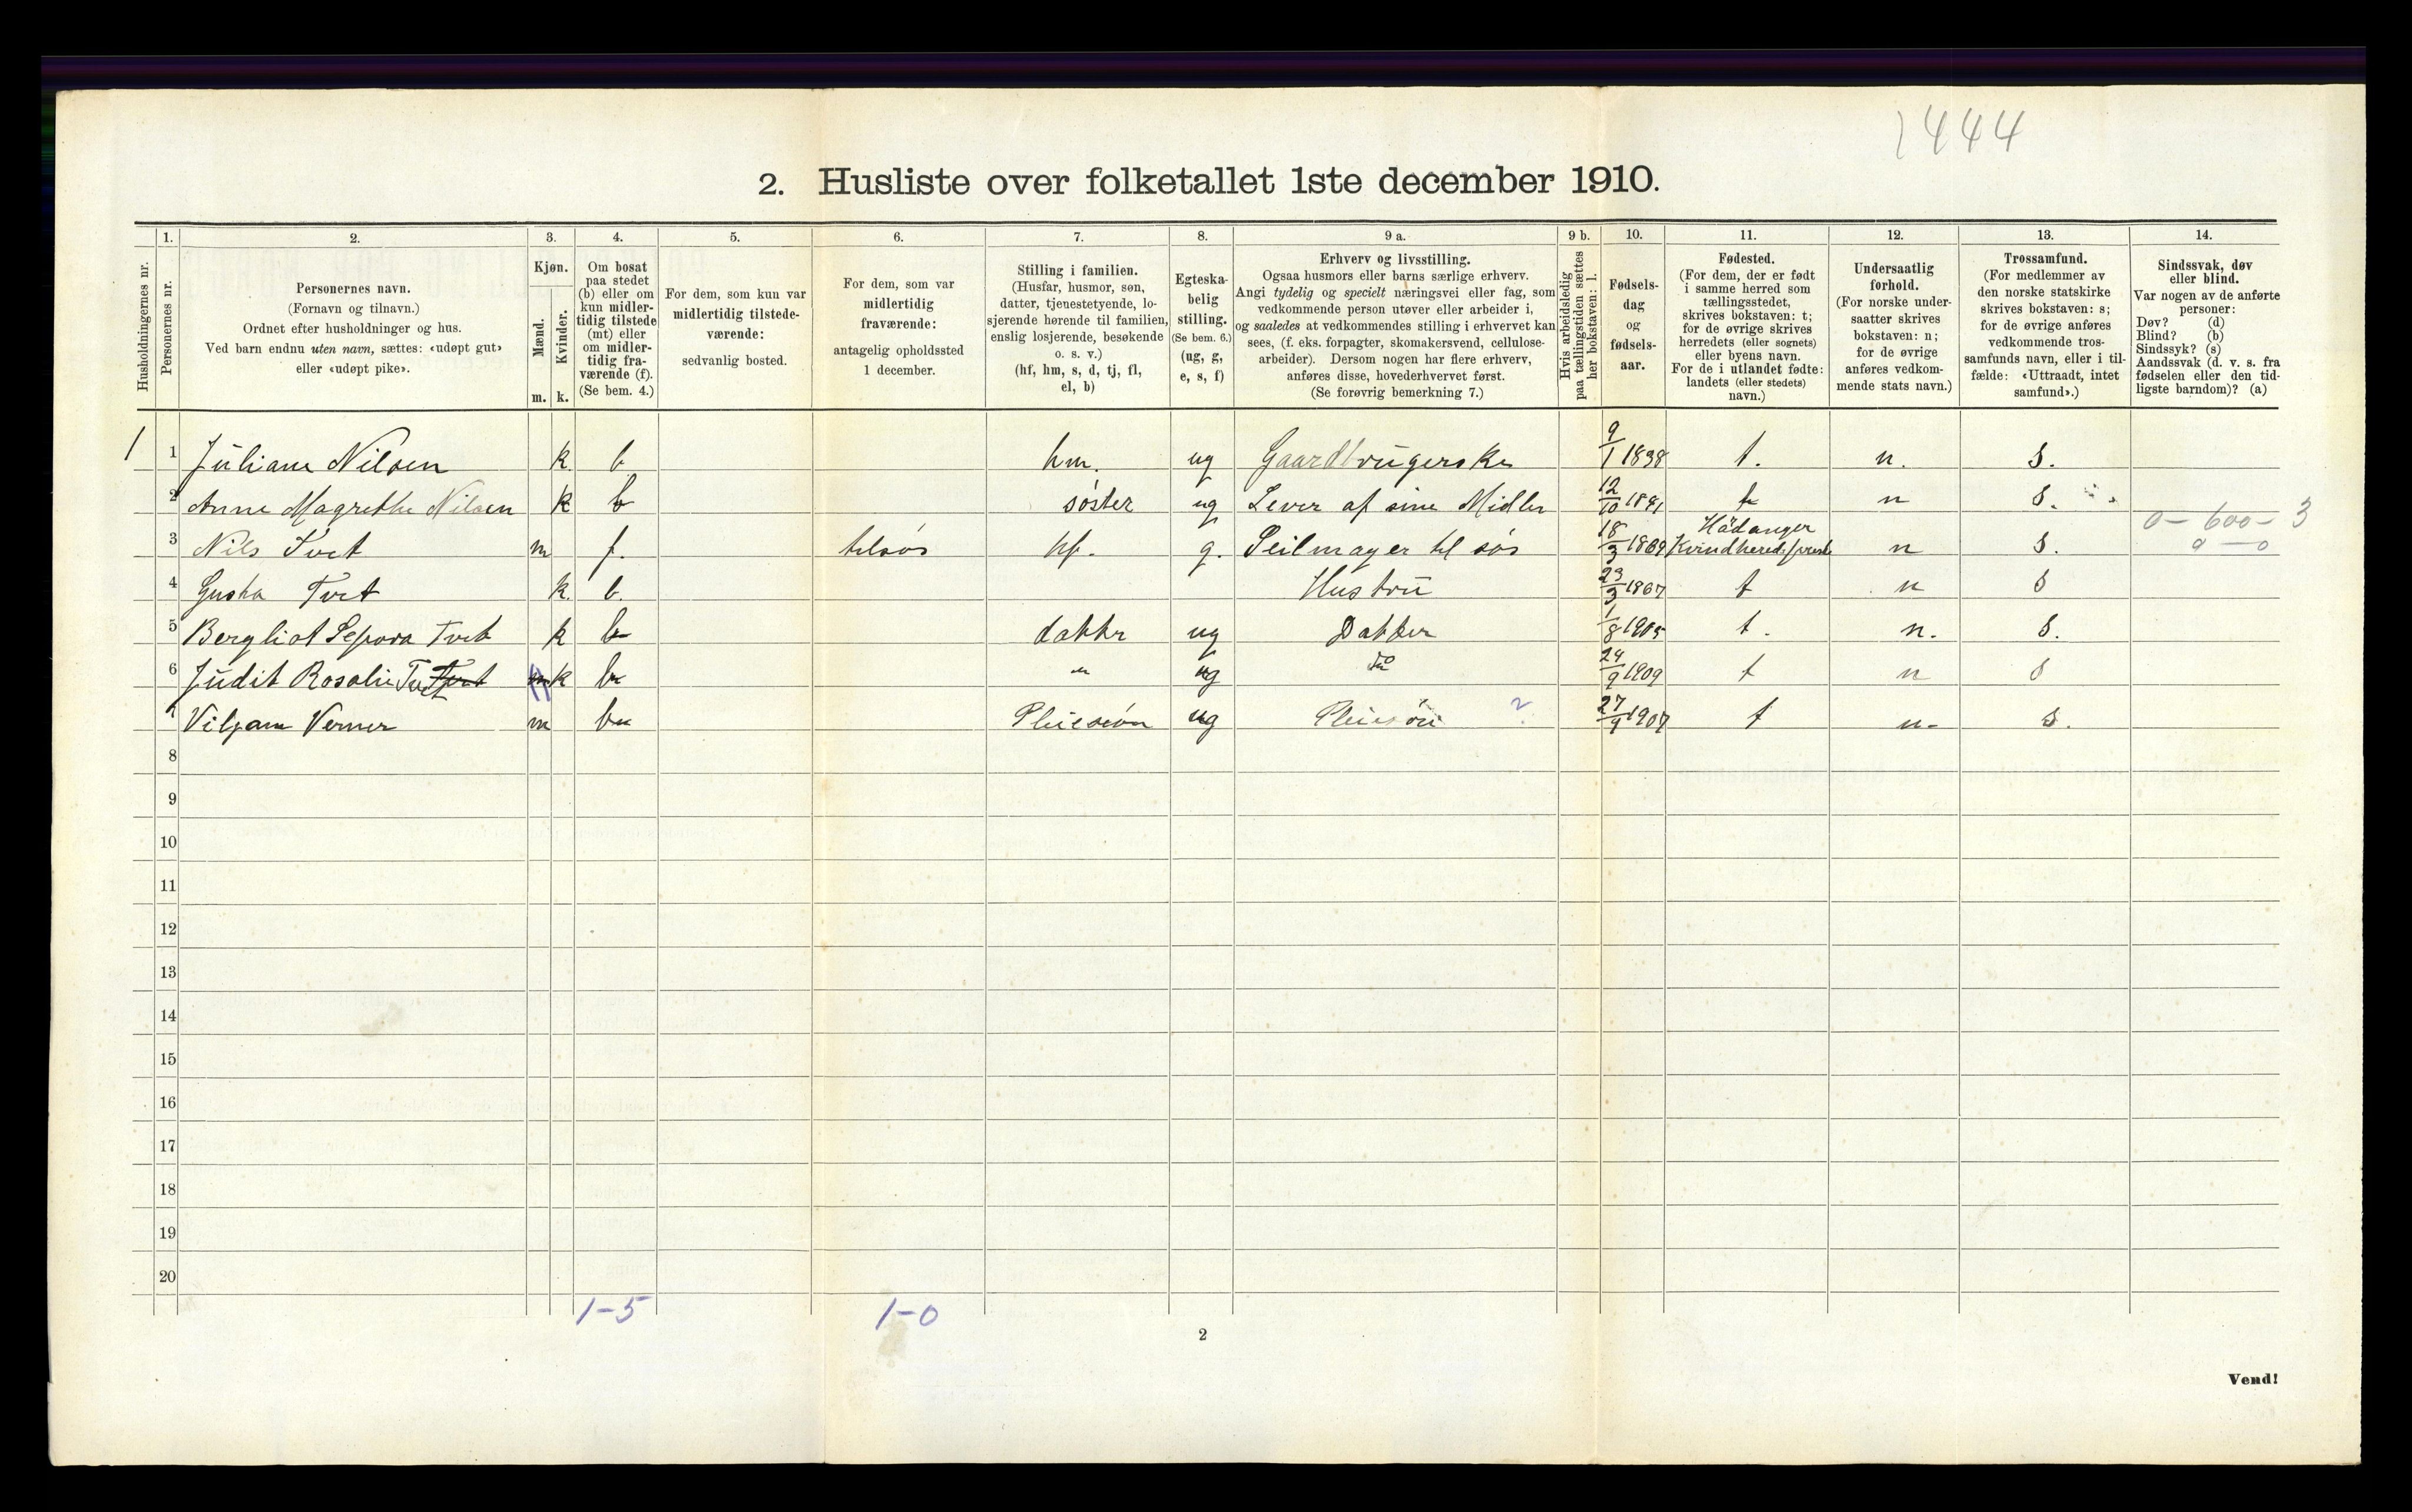 1444
2. Husliste over folketallet 1ste december 1910.
Husholdningernes nr.
1. Personernes nr.
2. Personernes navn.
(Fornavn og tilnavn.)
Ordnet efter husholdninger og hus.
Ved barn endnu uten navn, sættes: «udøpt gut»
eller «udøpt pike».
3. Kjøn.
Mænd. Kvinder.
m. k.
4. Om bosat
paa stedet
(b) eller om
kun midler-
tidig tilstede
(mt) eller
om midler-
tidig fra-
værende (f).
(Se bem. 4.)
5. For dem, som kun var
midlertidig tilstede-
værende:
sedvanlig bosted.
6. For dem, som var
midlertidig
fraværende:
antagelig opholdssted
1 december.
7. Stilling i familien.
(Husfar, husmor, søn,
datter, tjenestetyende, lo-
sjerende hørende til familien,
enslig losjerende, besøkende
o. s. v.)
(hf, hm, s, d, tj, fl,
el, b)
8. Egteska-
belig
stilling.
(Se bem. 6.)
(ug, g,
e, s, f)
9 a. Erhverv og livsstilling.
Ogsaa husmors eller barns særlige erhverv.
Angi tydelig og specielt næringsvei eller fag, som
vedkommende person utøver eller arbeider i,
og saaledes at vedkommendes stilling i erhvervet kan
sees, (f. eks. forpagter, skomakersvend, cellulose-
arbeider). Dersom nogen har flere erhverv,
anføres disse, hovederhvervet først.
(Se forøvrig bemerkning 7.)
9 b. Hvis arbeidsledig
paa tællingstiden sættes
her bokstaven: l.
10. Fødsels-
dag
og
fødsels-
aar.
11. Fødested.
(For dem, der er født
i samme herred som
tællingsstedet,
skrives bokstaven: t;
for de øvrige skrives
herredets (eller sognets)
eller byens navn.
For de i utlandet fødte:
landets (eller stedets)
navn.)
12. Undersaatlig
forhold.
(For norske under-
saatter skrives
bokstaven: n;
for de øvrige
anføres vedkom-
mende stats navn.)
13. Trossamfund.
(For medlemmer av
den norske statskirke
skrives bokstaven: s;
for de øvrige anføres
vedkommende tros-
samfunds navn, eller i til-
fælde: «Uttraadt, intet
samfund».)
14. Sindssvak, døv
eller blind.
Var nogen av de anførte
personer:
Døv? (d)
Blind? (b)
Sindssyk? (s)
Aandssvak (d. v. s. fra
fødselen eller den tid-
ligste barndom)? (a)
1 1 Juliane Nilsen k. b hm. ug Gaardbrugerske 9/1 1838 t. n. s.
2 Anne Magrethe Nilsen k b søster ug Lever af sine Midler 12/10 t n s.
3 Nils Tvet m f. tilsøs hf. g. Seilmager til søs 18/3 1869 Hadanger Kvindhered n s. 0 - 600 - 3
0 - 0
4 Gusta Tvet k. b. Hustru 23/3 1867 t n s
5 Bergliot Sepora Tvet k b datter ug Datter 1/8 1905 t. n. s.
6 Judit Rosalie Tvet k b " ug do 24/9 1909 t n s
7 Viljam Verner m b Pleiesøn ug Pleiesøn ? 27/9 1907 t n- s.
8
9
10
11
12
13
14
15
16
17
18
19
20
1-5 1-0
2
Vend!